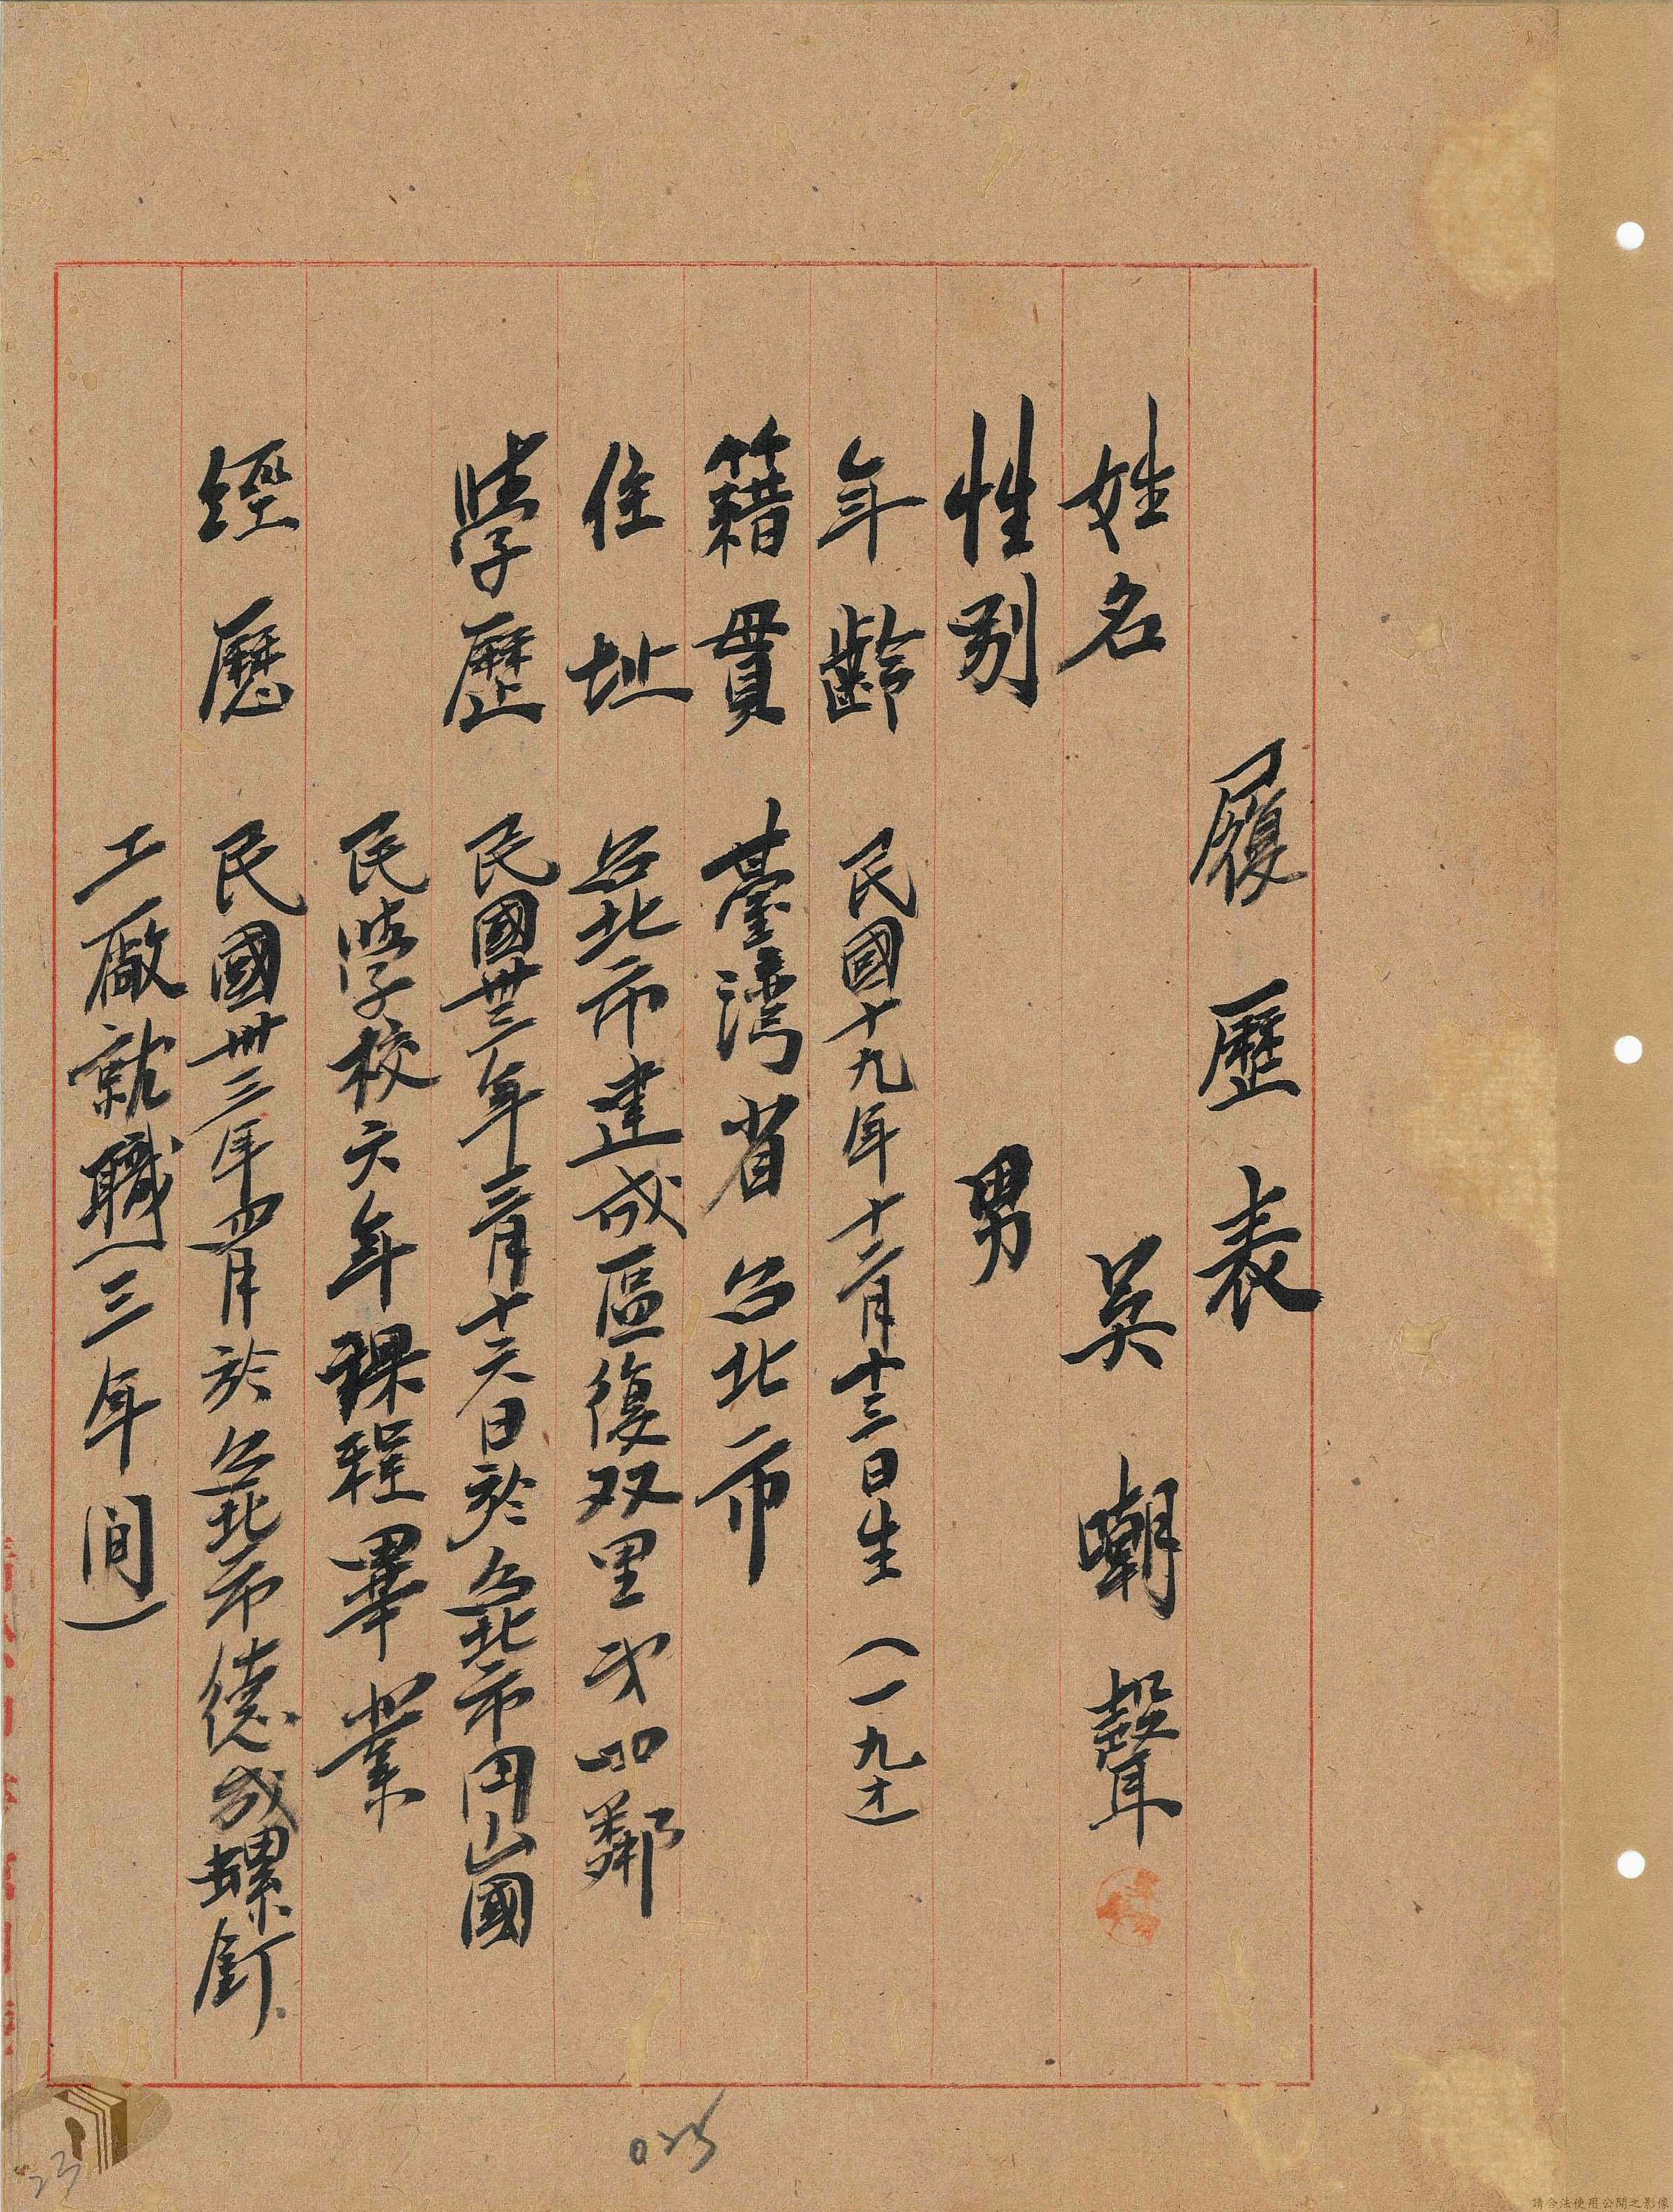 履歷表
姓名 吳嘲聲
性別 男
年齡 民國十九年十二月十三日生(一九才)
籍貫 臺灣省台北市
住址 台北市建成區復双里弍四鄰
學歷 民國卅三年三月十六日於台北市円山國
民學校六年課程畢業
經歷 民國卅三年四月於台北市德成螺釘
工廠就職(三年間)
025
23
請合法使用公開之影像